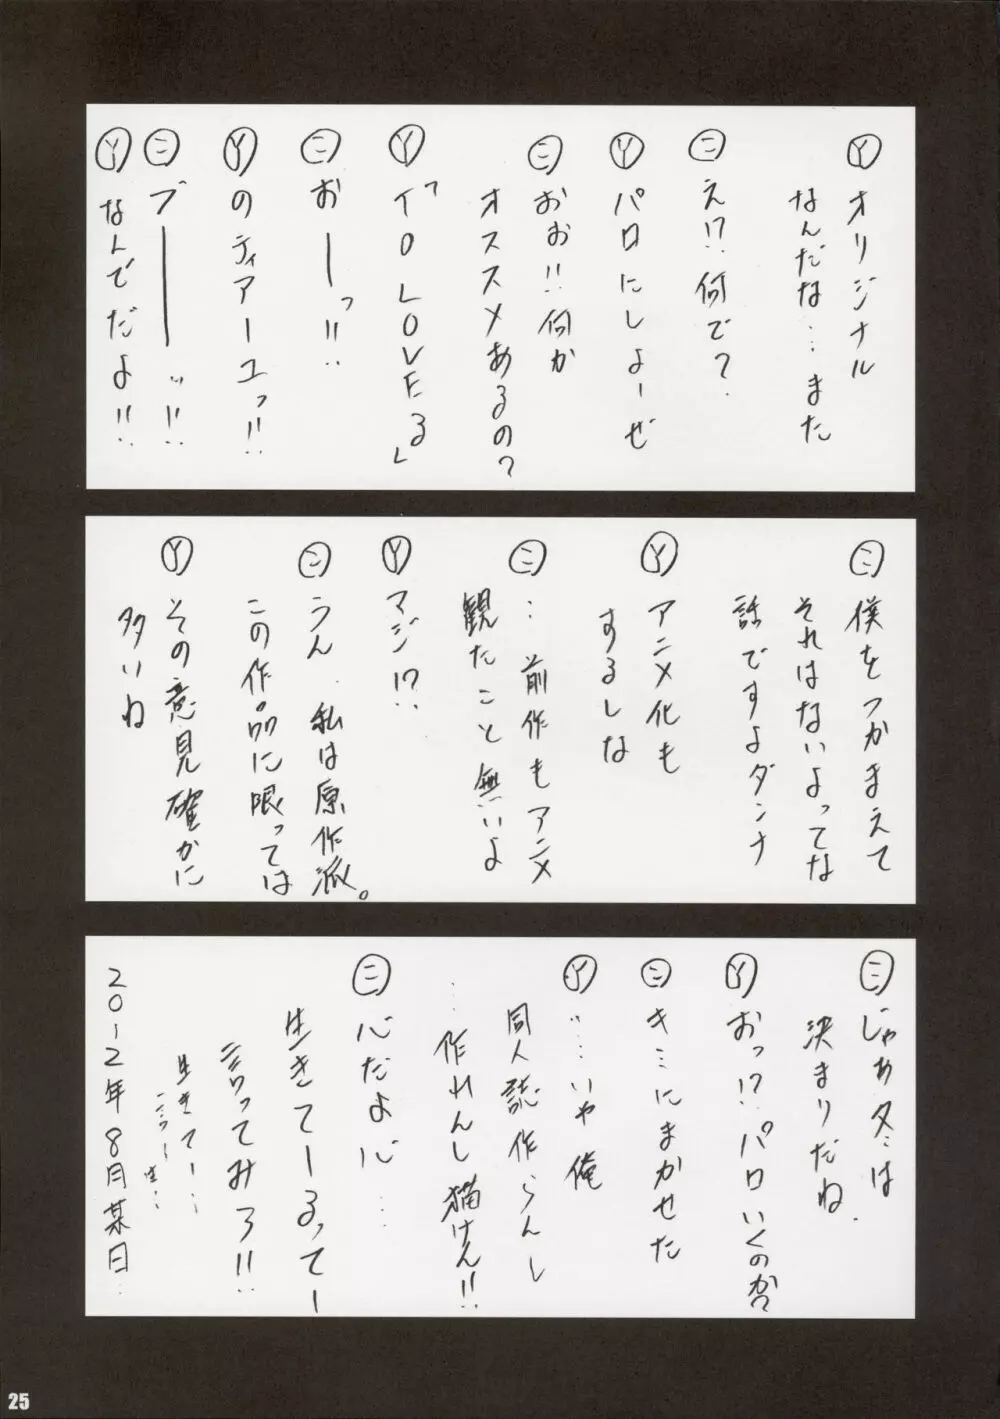 Ⓨオリジナル
なんだな…また
㊁え!?何で?
Ⓨパロにしよーぜ
㊁おお!!何か
オススメあるの?
Ⓨ「TO LOVEる」
㊁おーっ!!
Ⓨのティアーユっ!!
㊁ブーーッ!!
Ⓨなんでだよ!!
㊁僕をつかまえて
それはないよってな
話ですよダンナ
Ⓨアニメ化も
するしな
㊁…前作もアニメ
観たこと無いよ
Ⓨマジ!?
㊁うん、私は原作派。
この作品に限っては
Ⓨその意見確かに
多いね
㊁じゃあ冬は
決まりだね.
Ⓨおっ!?パロいくのか?
㊁キミにまかせた
Ⓨ…いや俺
同人誌作らんし
…作れんし描けん!!
㊁心だよ心…
生きてーるってー
言ってみろ!!
生きてー…
2012年8月某日
25